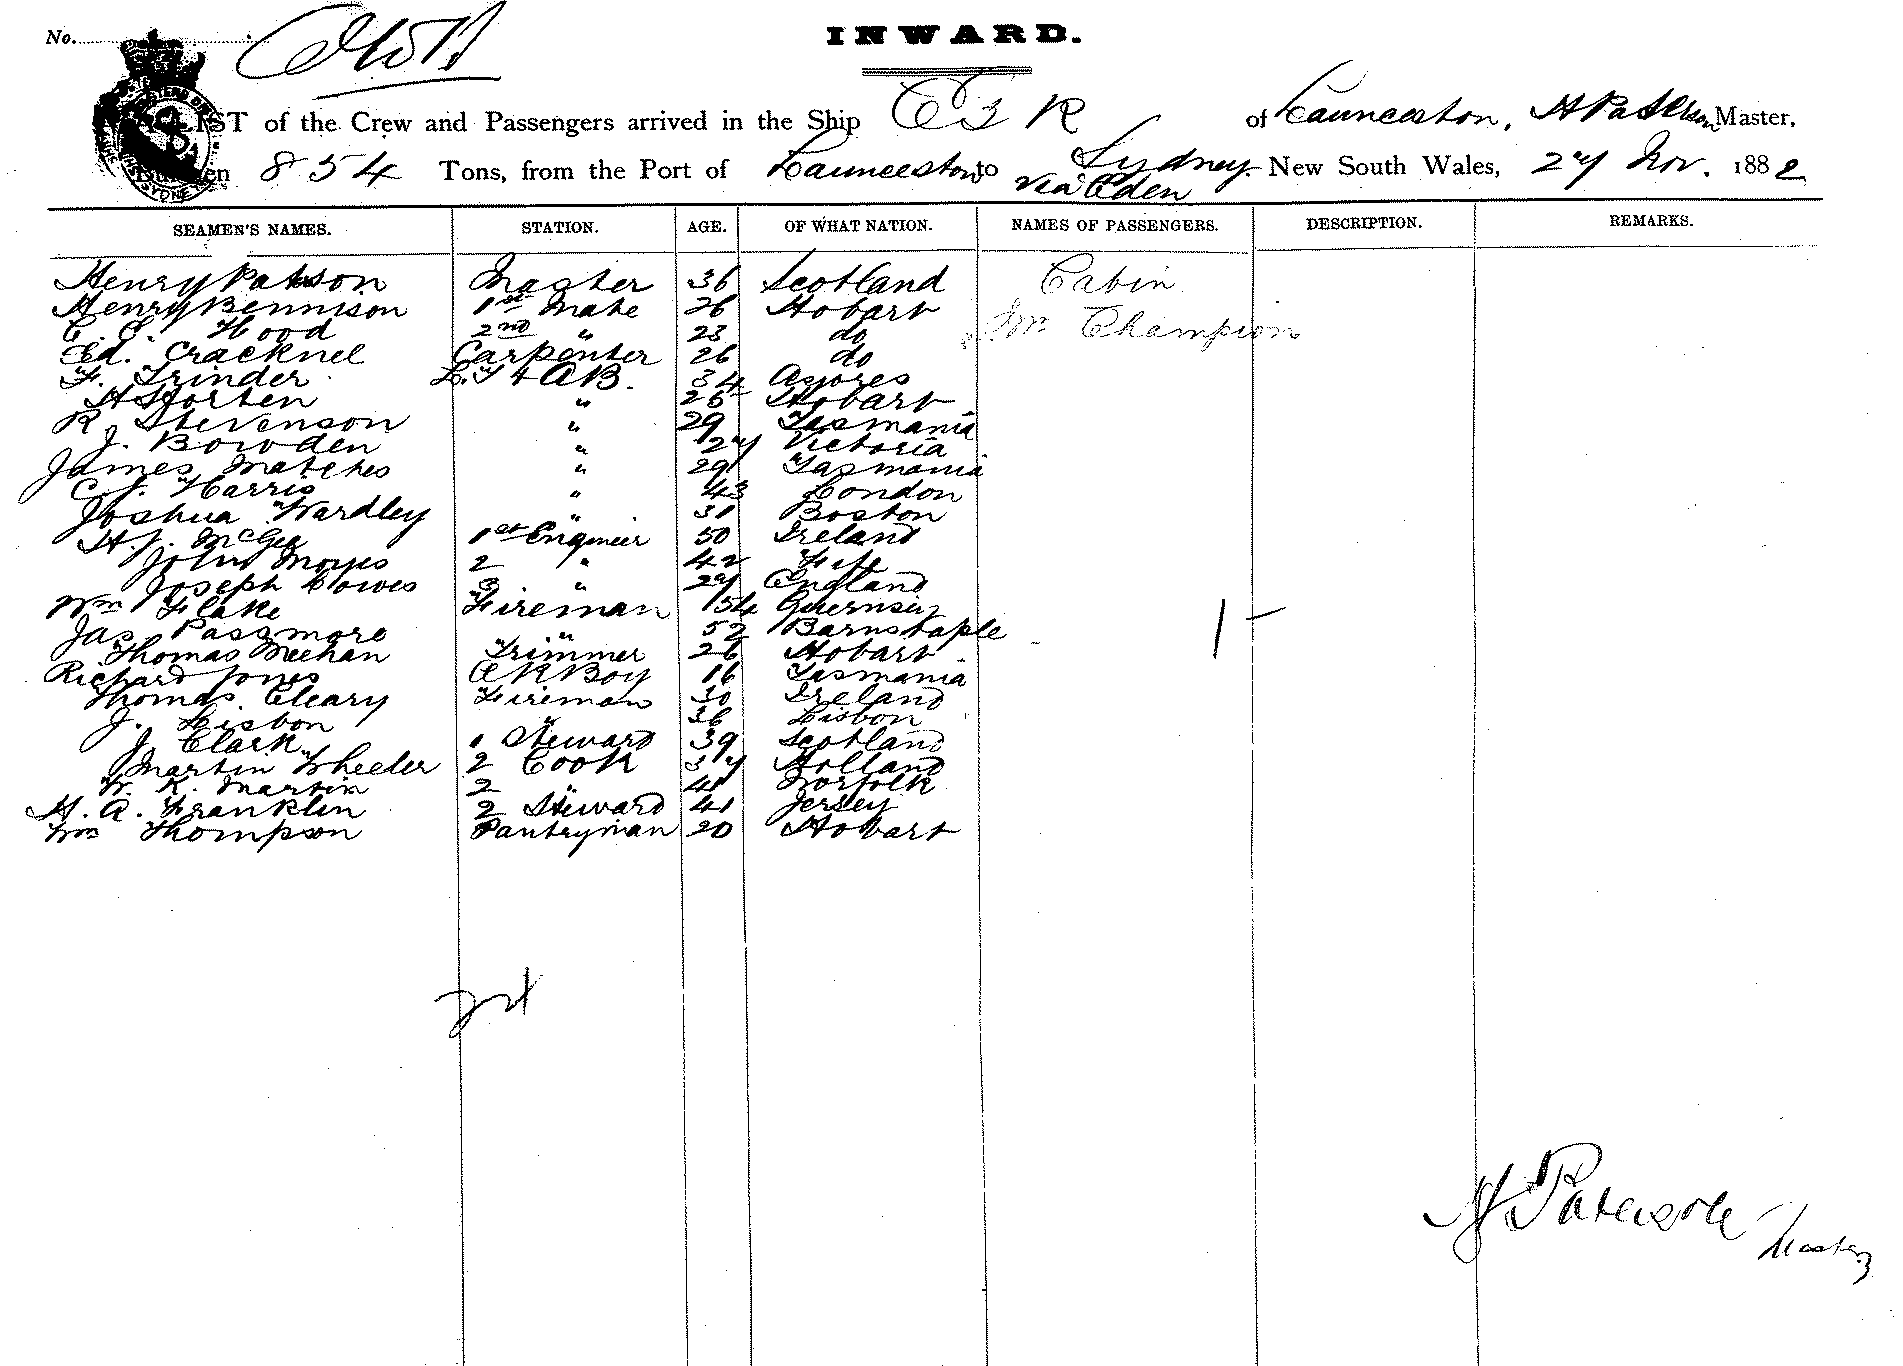 No.
INWARD.
LIST of the Crew and Passengers arrived in the Ship of Launceston, H Paterson Master,
Burthen 854 Tons, from the Port of Launceston to Sydney New South Wales, 27 Nov. 1882
via Eden
SEAMEN'S NAMES. STATION. AGE. OF WHAT NATION. NAMES OF PASSENGERS. DESCRIPTION. REMARKS.
Henry Patson Master 36 Scotland Cabin
Henry Bennison 1st Mate 26 Hobart Mr Champion
C. E. Hood 2nd " 23 do
Ed. Cracknel Carpenter 26 do
F. Trinder AB. 34 Asores
H Storten " 26 Hobart
R Stevenson " 29 Tasmania
J. Bowden " 27 Victoria
James Matches " 29 Tasmania
C. J. Harris " 43 London
Joshua Wardley " 31 Boston
H. J. McGee 1st Engineer 50 Ireland
John Moyes 2 " 42 Fife
Joseph Cowes 3 " 27 England
Wm Flake Fireman 54 Guernsey
Jas Passmore " 52 Barnstaple
Thomas Meehan Trimmer 26 Hobart
Richard Jones Boy 16 Tasmania
Thomas Cleary Fireman 30 Ireland
J. Lisbon " 36 Lisbon
J Clark 1 Steward 39 Scotland
Martin Wheeler 2 Cook 37 Holland
W. R. Martin 2 " 41 Norfolk
H. A. Franklin 2 Steward 41 Jersey
Wm Thompson Pantryman 20 Hobart
H Paterson Master